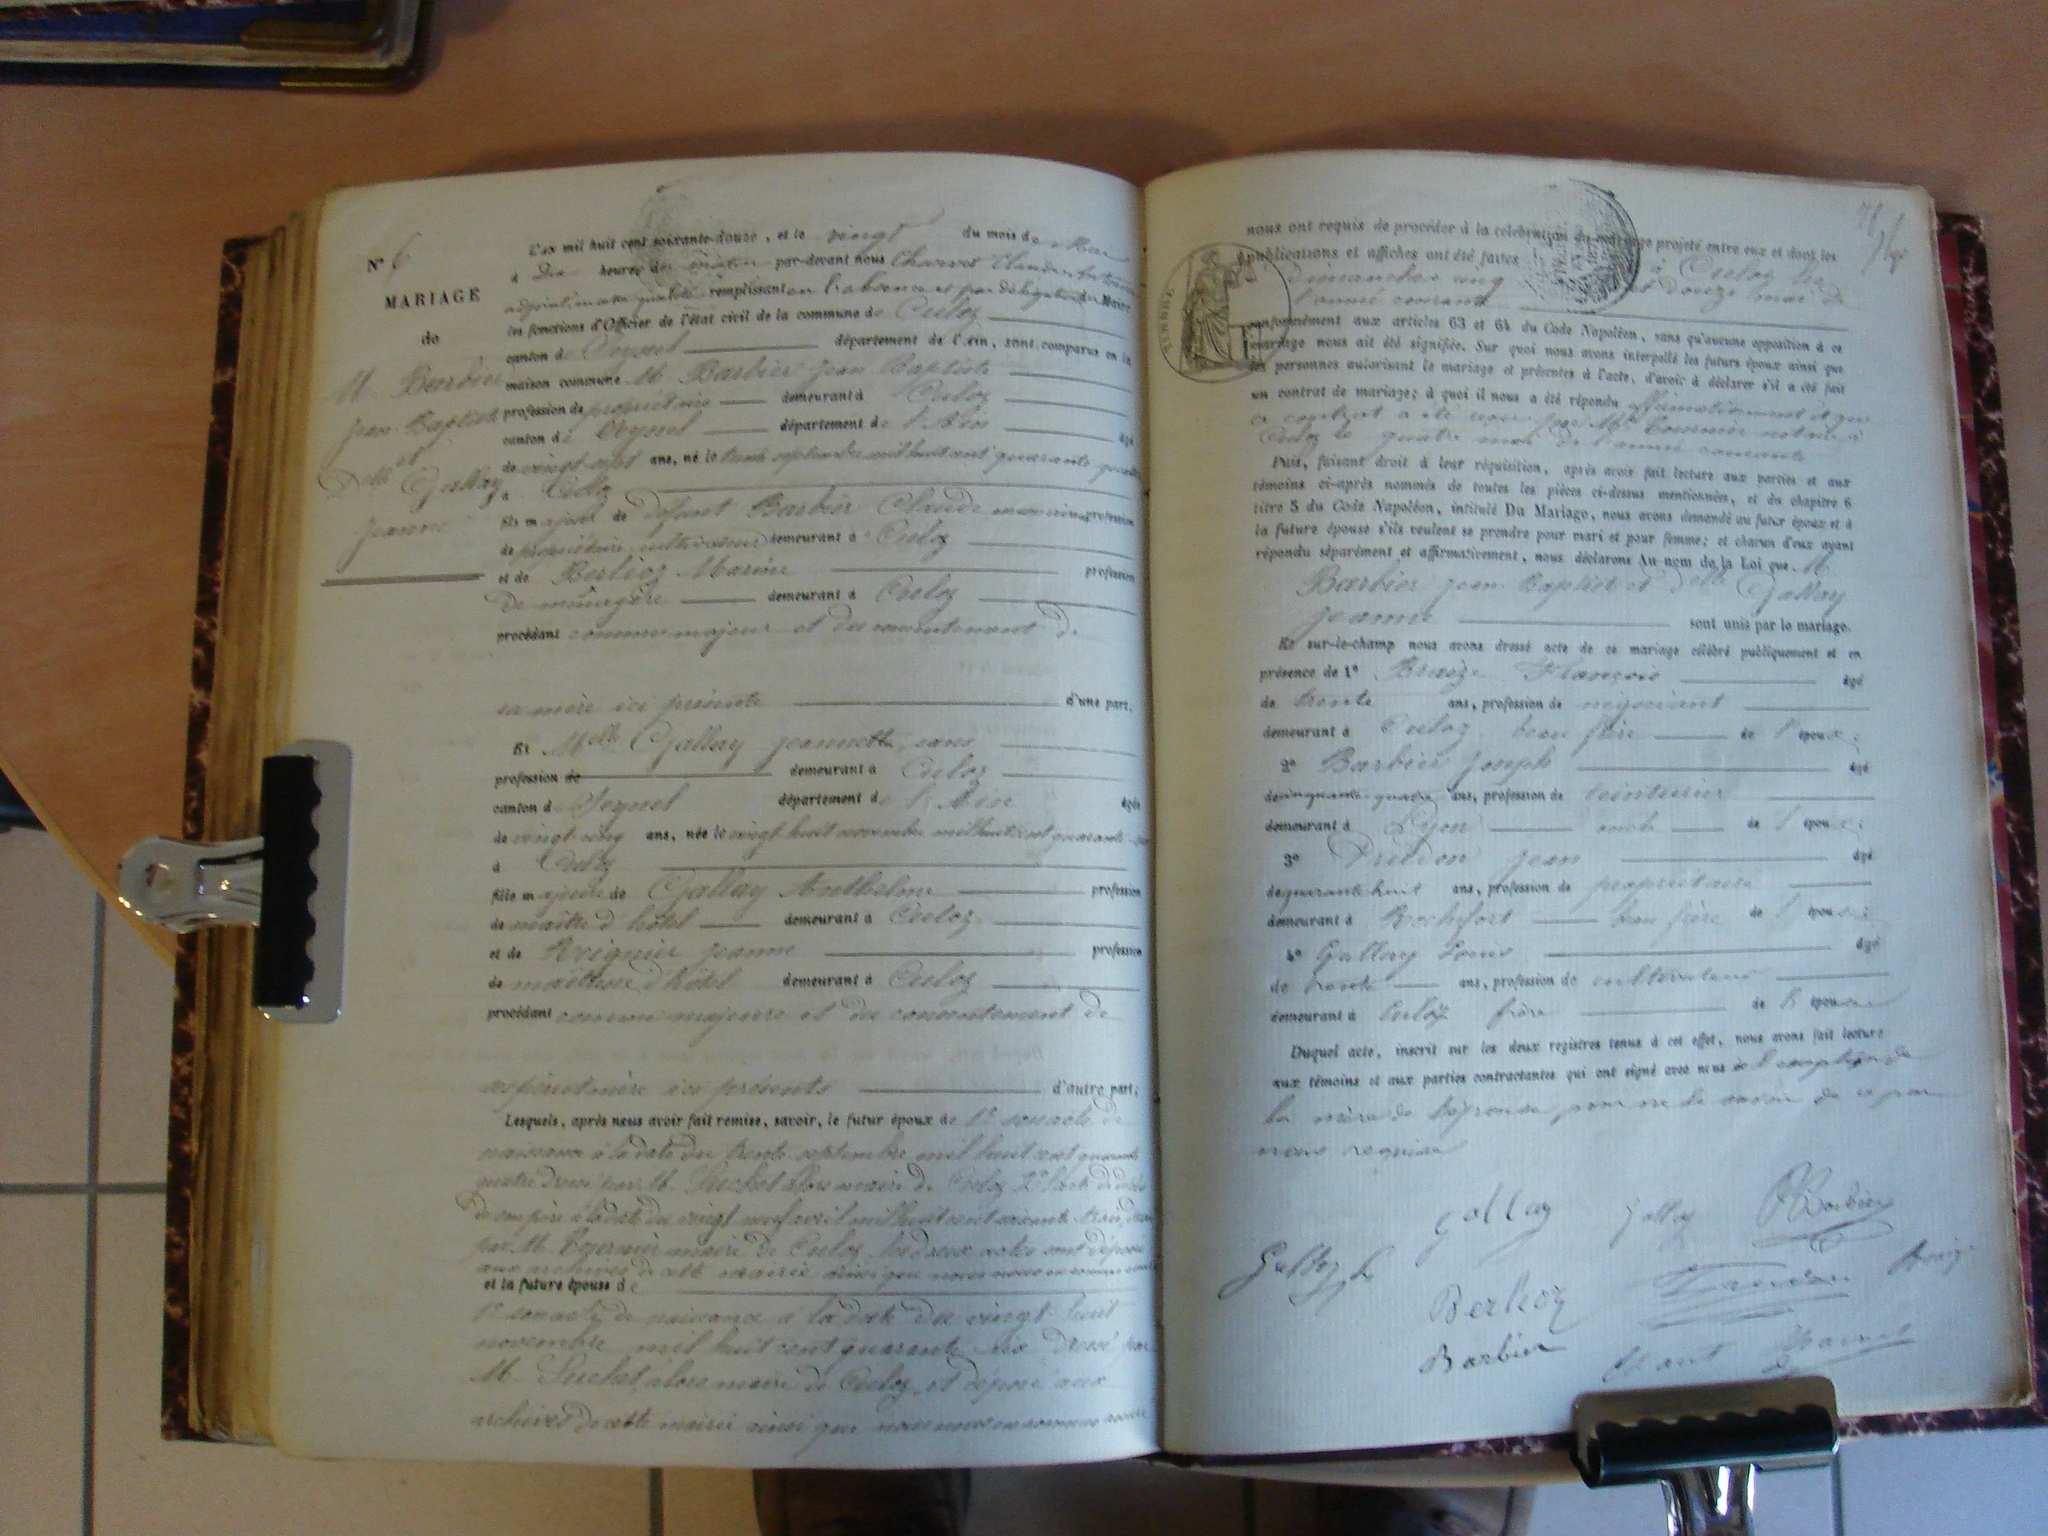 N° 6
MARIAGE
de
M. Barbier
Jean Baptiste
et
Delle Gallay
Jeanne
L'an mil huit cent soixante-douze, et le vingt du mois de Mai
à Dix heures du matin par-devant nous Charvet Claude Antoine
adjoint, en cette qualité remplissant en l'absence et par délégation du Maire
les fonctions d'Officier de l'état civil de la commune de Culoz
canton de Seyssel département de l'Ain, sont comparus en la
maison commune M. Barbier Jean Baptiste
profession de propriétaire demeurant à Culoz
canton de Seyssel département de l'Ain âgé
de vingt sept ans, né le trente septembre mil huit cent quarante quatre
à Culoz
fils majeur de défunt Barbier Claude en son vivant profession
de propriétaire cultivateur demeurant à Culoz
et de Berlioz Marie profession
de ménagère demeurant à Culoz
procédant comme majeur et du consentement de
sa mère ici présente d'une part.
Et Melle Gallay Jeannette, sans
profession de demeurant à Culoz
canton de Seyssel département de l'Ain âgée
de vingt cinq ans, née le vingt huit novembre mil huit cent quarante six
à Culoz
fille majeure de Gallay Anthelme profession
de maître d'hôtel demeurant à Culoz
et de Jeanne profession
de maîtresse d'hôtel demeurant à Culoz
procédant comme majeure et du consentement de
ses père et mère ici présents d'autre part;
Lesquels, après nous avoir fait remise, savoir, le futur époux de 1° son acte de
naissance à la date du trente septembre mil huit cent quarante
quatre dressé par M. Suchet alors maire de Culoz 2° l'acte de décès
de son père à la date du vingt neuf avril mil huit cent soixante trois, dressé
par M. maire de Culoz, les deux actes sont déposés
aux archives de cette mairie ainsi que nous nous en sommes assuré
et la future épouse de
1° son acte de naissance à la date du vingt huit
novembre mil huit cent quarante six dressé par
M. Suchet, alors maire de Culoz, et déposé aux
archives de cette mairie ainsi que nous nous en sommes assuré
nous ont requis de procéder à la célébration du mariage projeté entre eux et dont les
publications et affiches ont été faites à Culoz les
dimanches cinq et douze mai de
l'année courante
TIMBRE
conformément aux articles 63 et 64 du Code Napoléon, sans qu'aucune opposition à ce
mariage nous ait été signifiée. Sur quoi nous avons interpellé les futurs époux ainsi que
les personnes autorisant le mariage et présentes à l'acte, d'avoir à déclarer s'il a été fait
un contrat de mariage; à quoi il nous a été répondu affirmativement et que
ce contrat a été reçu par Me notaire à
Culoz le quatre mai de l'année courante
Puis, faisant droit à leur réquisition, après avoir fait lecture aux parties et aux
témoins ci-après nommés de toutes les pièces ci-dessus mentionnées, et du chapitre 6
titre 5 du Code Napoléon, intitulé Du Mariage, nous avons demandé au futur époux et à
la future épouse s'ils veulent se prendre pour mari et pour femme; et chacun d'eux ayant
répondu séparément et affirmativement, nous déclarons Au nom de la Loi que M.
Barbier Jean Baptiste et Delle Gallay
Jeanne sont unis par le mariage.
Et sur-le-champ nous avons dressé acte de ce mariage célébré publiquement et en
présence de 1° Braize François âgé
de trente ans, profession de négociant
demeurant à Culoz beau frère de l'époux.
2° Barbier Joseph âgé
de cinquante quatre ans, profession de teinturier
demeurant à Lyon oncle de l'époux.
3° Jean âgé
de quarante huit ans, profession de propriétaire
demeurant à Rochefort beau frère de l'époux
4° Gallay Louis âgé
de trente ans, profession de cultivateur
demeurant à Culoz frère de l'épouse
Duquel acte, inscrit sur les deux registres tenus à cet effet, nous avons fait lecture
aux témoins et aux parties contractantes qui ont signé avec nous à l'exception de
la mère de l'épouse pour ne le savoir de ce par
nous requise
Gallay Gallay Barbier
Gallay L Berlioz Braize
Barbier Charvet